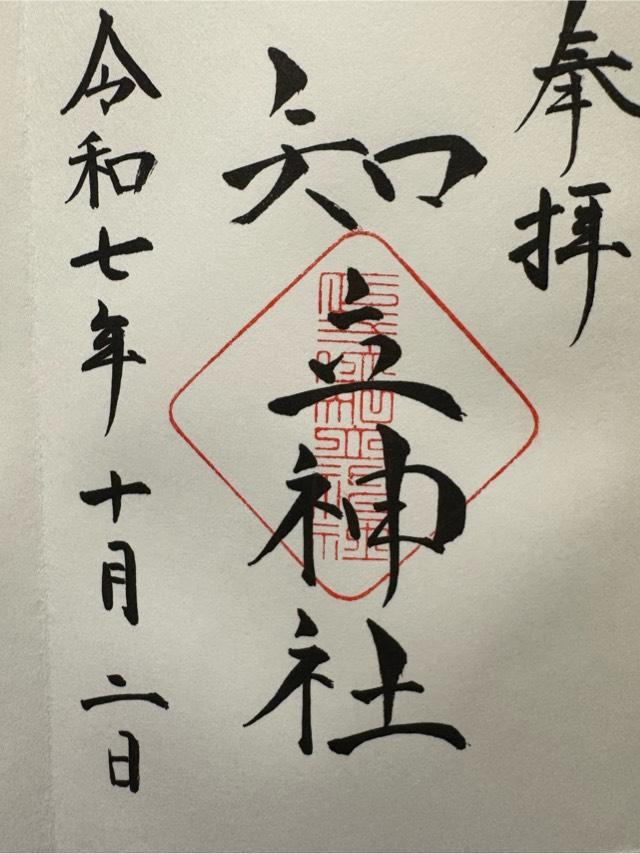 奉拝
知立神社
令和七年十月二日